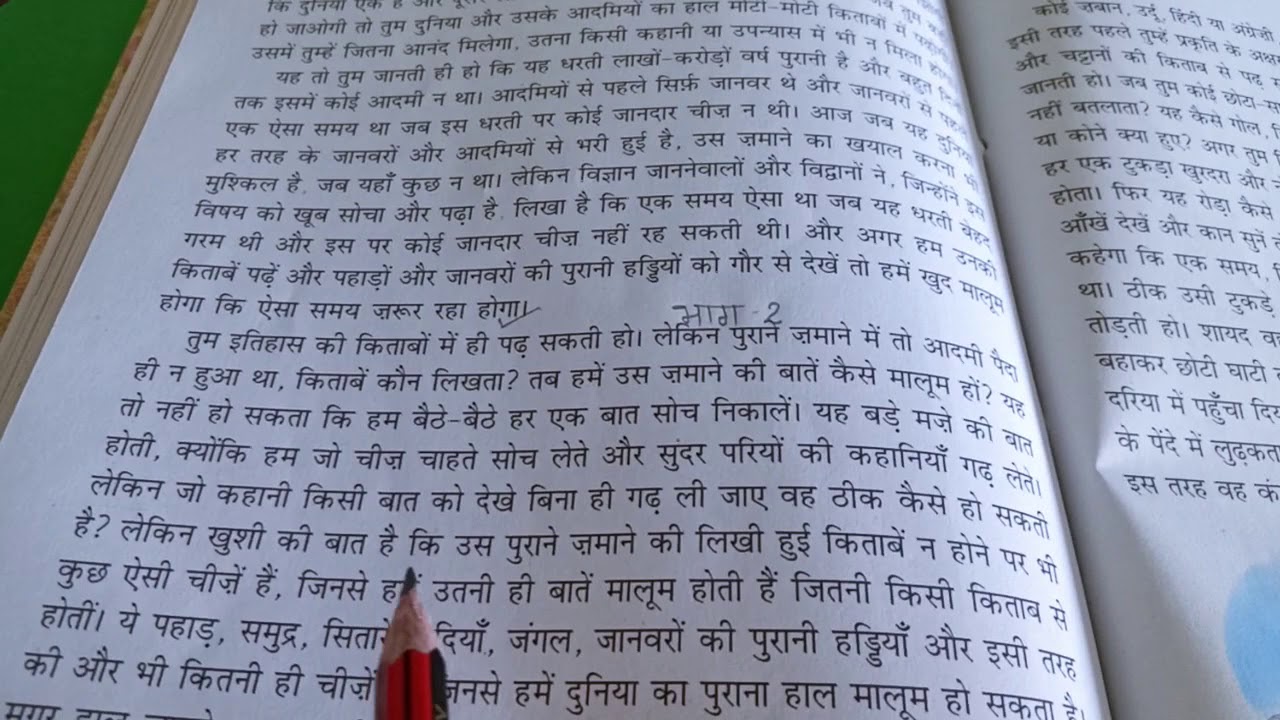 कि दुनिया एक है और
हो जाओगी तो तुम दुनिया और उसके आदमियों का हाल मोटी-मोटी किताबों में
उसमें तुम्हें जितना आनंद मिलेगा, उतना किसी कहानी या उपन्यास में भी न मिला
यह तो तुम जानती ही हो कि यह धरती लाखों-करोड़ों वर्ष पुरानी है और बहुत
तक इसमें कोई आदमी न था। आदमियों से पहले सिर्फ़ जानवर थे और जानवरों से पहले
एक ऐसा समय था जब इस धरती पर कोई जानदार चीज़ न थी। आज जब यह दुनिया
हर तरह के जानवरों और आदमियों से भरी हुई है, उस ज़माने का खयाल करना भी
मुश्किल है, जब यहाँ कुछ न था। लेकिन विज्ञान जाननेवालों और विद्वानों ने, जिन्होंने इस
विषय को खूब सोचा और पढ़ा है, लिखा है कि एक समय ऐसा था जब यह धरती बेहद
गरम थी और इस पर कोई जानदार चीज़ नहीं रह सकती थी। और अगर हम उनकी
किताबें पढ़ें और पहाड़ों और जानवरों की पुरानी हड्डियों को गौर से देखें तो हमें खुद मालूम
होगा कि ऐसा समय ज़रूर रहा होगा।
भाग-2
तुम इतिहास की किताबों में ही पढ़ सकती हो। लेकिन पुराने ज़माने में तो आदमी पैदा
ही न हुआ था, किताबें कौन लिखता? तब हमें उस ज़माने की बातें कैसे मालूम हों? यह
तो नहीं हो सकता कि हम बैठे-बैठे हर एक बात सोच निकालें। यह बड़े मज़े की बात
होती, क्योंकि हम जो चीज़ चाहते सोच लेते और सुंदर परियों की कहानियाँ गढ़ लेते।
लेकिन जो कहानी किसी बात को देखे बिना ही गढ़ ली जाए वह ठीक कैसे हो सकती
है? लेकिन खुशी की बात है कि उस पुराने ज़माने की लिखी हुई किताबें न होने पर भी
कुछ ऐसी चीज़ें हैं, जिनसे हमें उतनी ही बातें मालूम होती हैं जितनी किसी किताब से
होतीं। ये पहाड़, समुद्र, सितारे, नदियाँ, जंगल, जानवरों की पुरानी हड्डियाँ और इसी तरह
की और भी कितनी ही चीज़ें जिनसे हमें दुनिया का पुराना हाल मालूम हो सकता है।
मगर हाल
कोई ज़बान, उर्दू, हिंदी या अंग्रेज़ी
इसी तरह पहले तुम्हें प्रकृति के अक्षर
और चट्टानों की किताब से पढ़
जानती हो। जब तुम कोई छोटा-सा
नहीं बतलाता? यह कैसे गोल,
या कोने क्या हुए? अगर तुम
हर एक टुकड़ा खुरदरा और
होता। फिर यह रोड़ा कैसे
आँखें देखें और कान सुनें
कहेगा कि एक समय,
था। ठीक उसी टुकड़े
तोड़ती हो। शायद वह
बहाकर छोटी घाटी
दरिया में पहुँचा दिया
के पेंदे में लुढ़कता
इस तरह वह